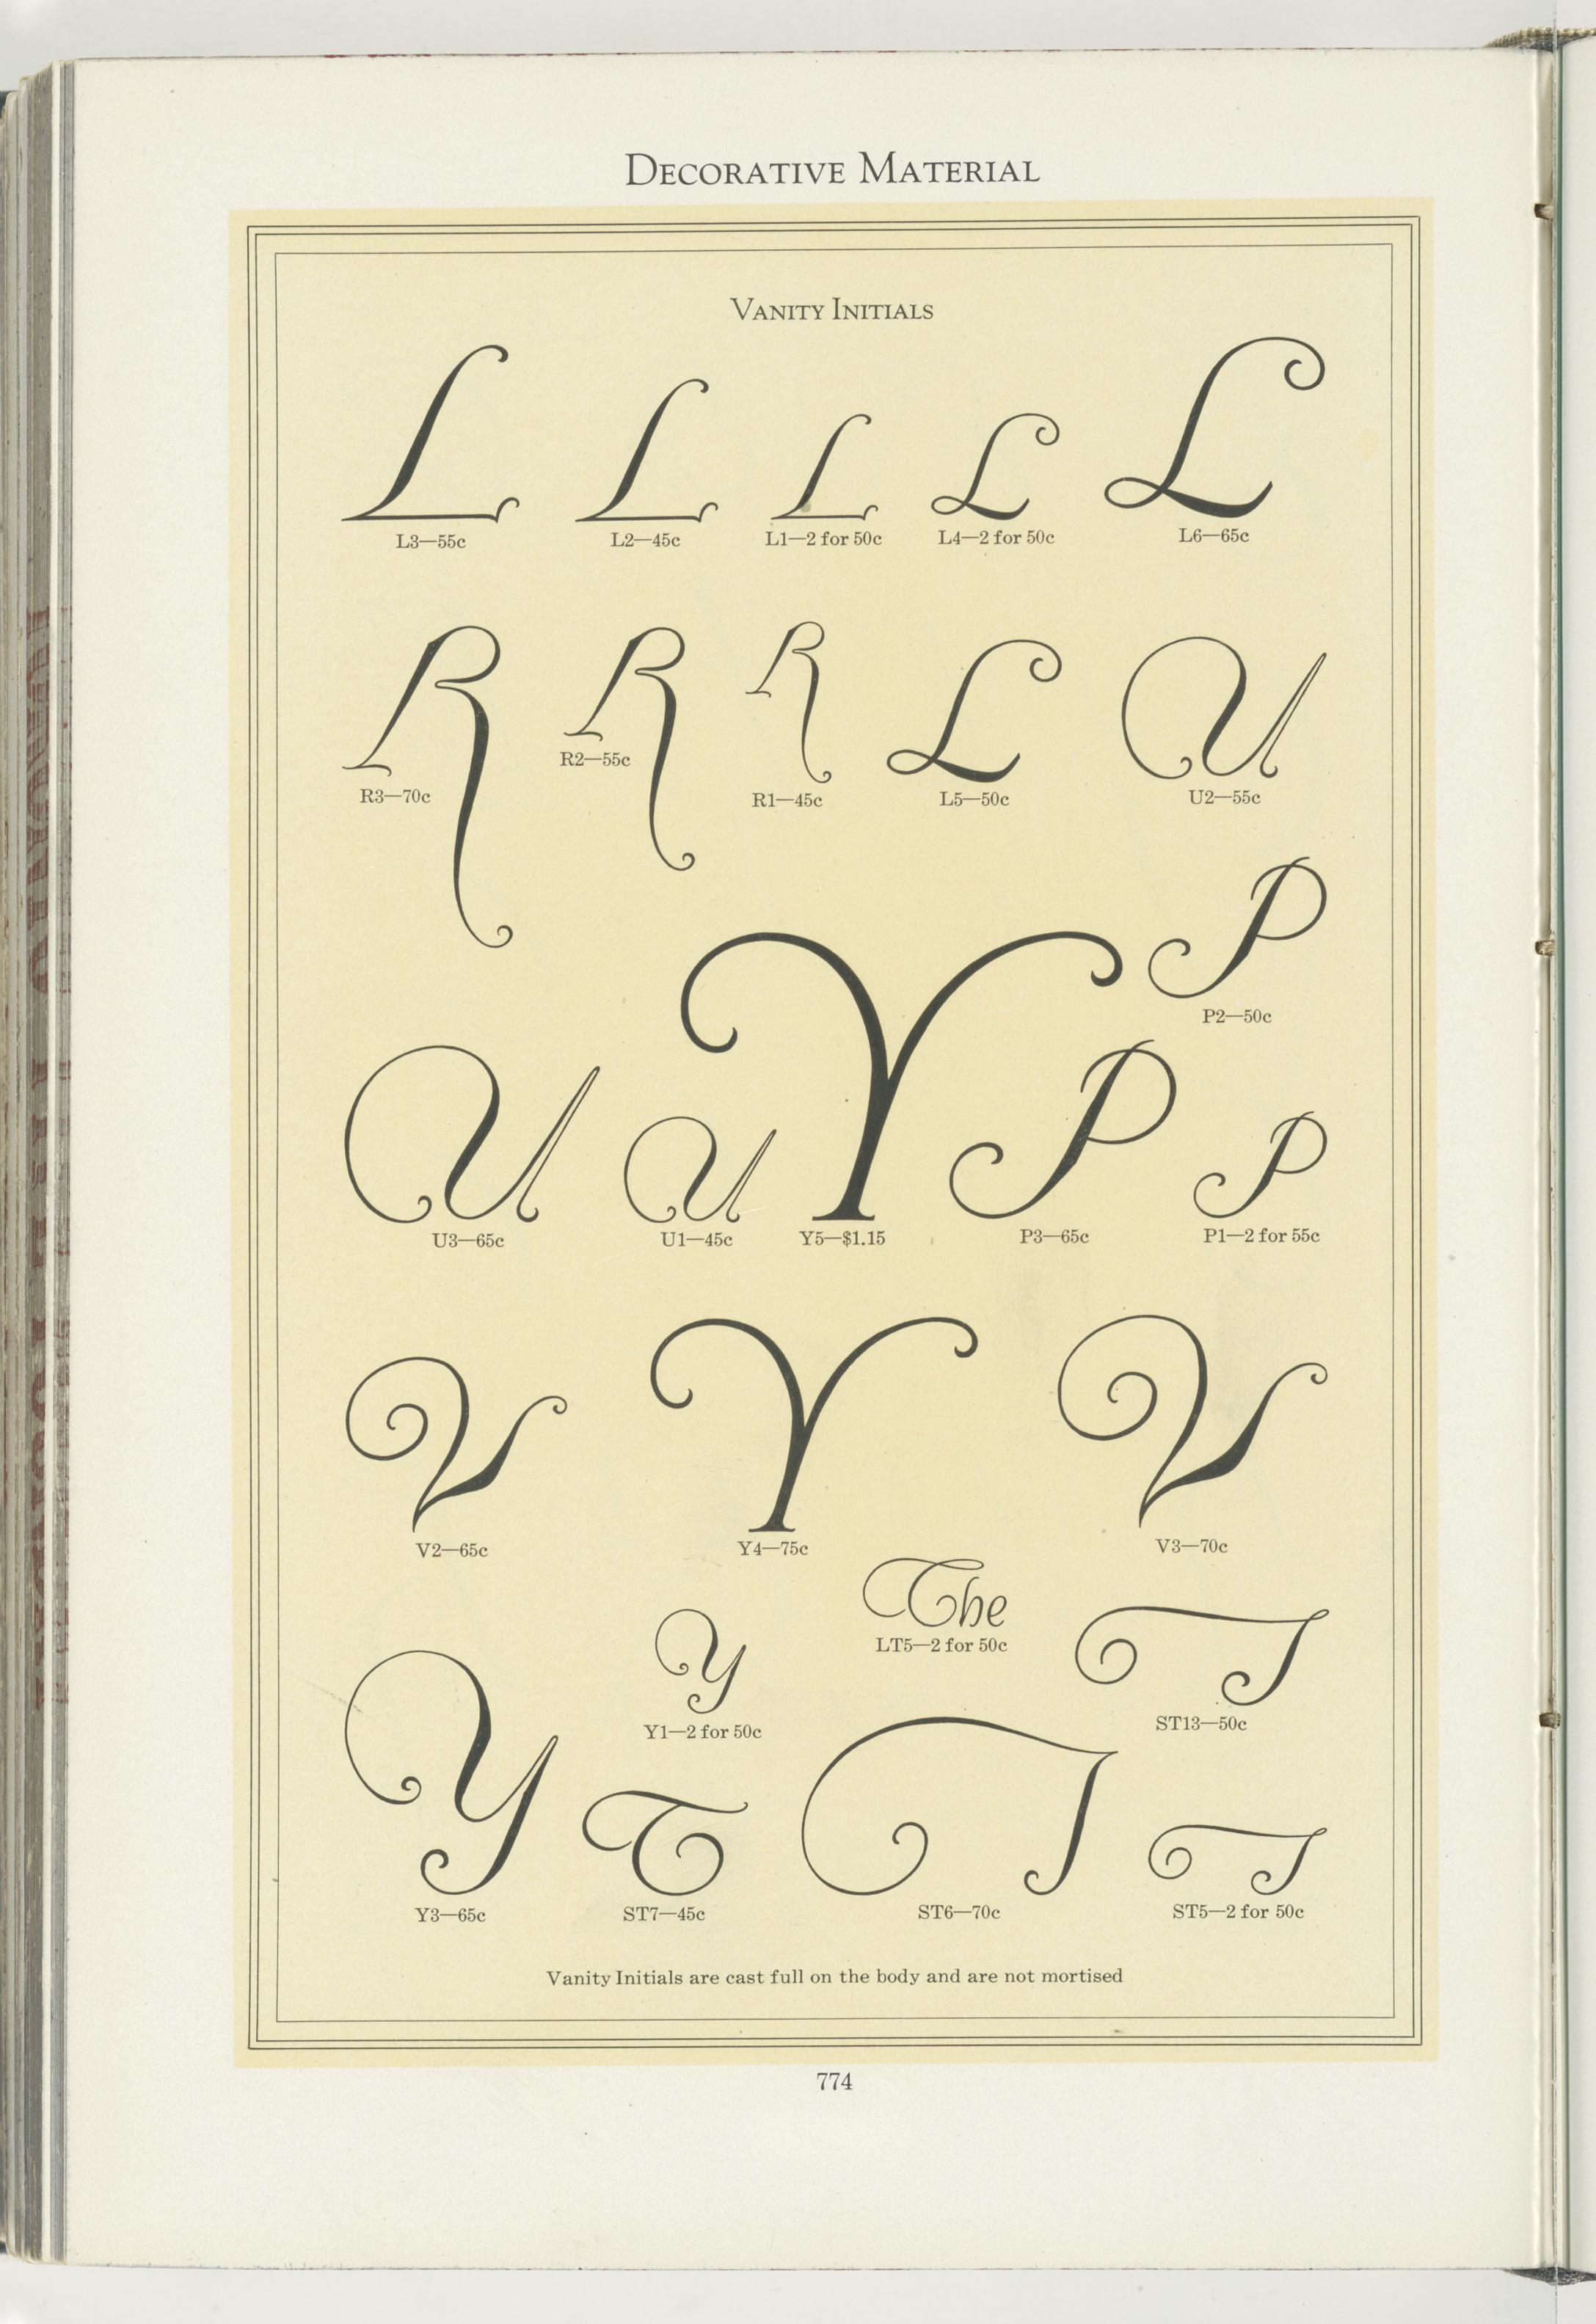 DECORATIVE MATERIAL
VANITY INITIALS
L L L L L
L3—55c L2—45c L1—2 for 50c L4—2 for 50c L6—65c
R R R L U
R3—70c R2—55c R1—45c L5—50c U2—55c
P
P2—50c
U U Y P P
U3—65c U1—45c Y5—$1.15 P3—65c P1—2 for 55c
V Y V
V2—65c Y4—75c V3—70c
Y The T
Y1—2 for 50c LT5—2 for 50c ST13—50c
Y T T T
Y3—65c ST7—45c ST6—70c ST5—2 for 50c
Vanity Initials are cast full on the body and are not mortised
774